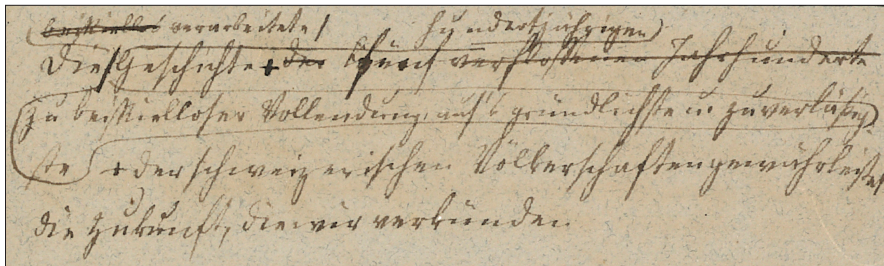 beispiellos verarbeitete hundertjährigen
Die Geschichte der fünf verflossenen Jahrhunderte
zu beispielloser Vollendung, auf's gründlichste u. zuverläßig-
ste der schweizerischen Völkerschaften gewährleistet
die Zukunft, die wir verkünden.